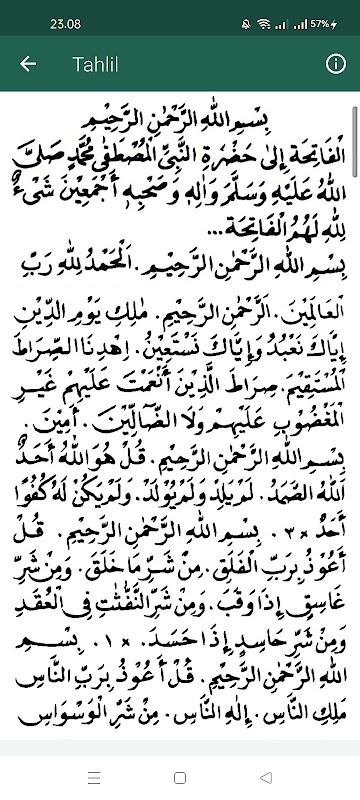 23.08
57%
Tahlil
بِسْمِ اللهِ الرَّحْمٰنِ الرَّحِيْمِ
الْفَاتِحَة إِلىٰ حَضْرَةِ النَّبِيِّ الْمُصْطَفٰى مُحَمَّدٍ صَلَّى
اللهُ عَلَيْهِ وَسَلَّمَ وَاٰلِهِ وَصَحْبِهِ أَجْمَعِيْنَ شَيْءٌ
لِلّٰهِ لَهُمُ الْفَاتِحَة...
بِسْمِ اللهِ الرَّحْمٰنِ الرَّحِيْمِ. اَلْحَمْدُ لِلّٰهِ رَبِّ
الْعَالَمِيْنَ. اَلرَّحْمٰنِ الرَّحِيْمِ. مٰلِكِ يَوْمِ الدِّيْنِ
إِيَّاكَ نَعْبُدُ وَإِيَّاكَ نَسْتَعِيْنُ. اِهْدِنَا الصِّرَاطَ
الْمُسْتَقِيْمَ. صِرَاطَ الَّذِيْنَ أَنْعَمْتَ عَلَيْهِمْ غَيْرِ
الْمَغْضُوْبِ عَلَيْهِمْ وَلَا الضَّالِّيْنَ. اٰمِيْنَ.
بِسْمِ اللهِ الرَّحْمٰنِ الرَّحِيْمِ. قُلْ هُوَ اللهُ أَحَدٌ
اَللهُ الصَّمَدُ. لَمْ يَلِدْ وَلَمْ يُوْلَدْ. وَلَمْ يَكُنْ لَهُ كُفُوًا
أَحَدٌ ×٣. بِسْمِ اللهِ الرَّحْمٰنِ الرَّحِيْمِ. قُلْ
أَعُوْذُ بِرَبِّ الْفَلَقِ. مِنْ شَرِّ مَا خَلَقَ. وَمِنْ شَرِّ
غَاسِقٍ إِذَا وَقَبَ. وَمِنْ شَرِّ النَّفّٰثٰتِ فِى الْعُقَدِ
وَمِنْ شَرِّ حَاسِدٍ إِذَا حَسَدَ. ×١. بِسْمِ
اللهِ الرَّحْمٰنِ الرَّحِيْمِ. قُلْ أَعُوْذُ بِرَبِّ النَّاسِ
مَلِكِ النَّاسِ. إِلٰهِ النَّاسِ. مِنْ شَرِّ الْوَسْوَاسِ